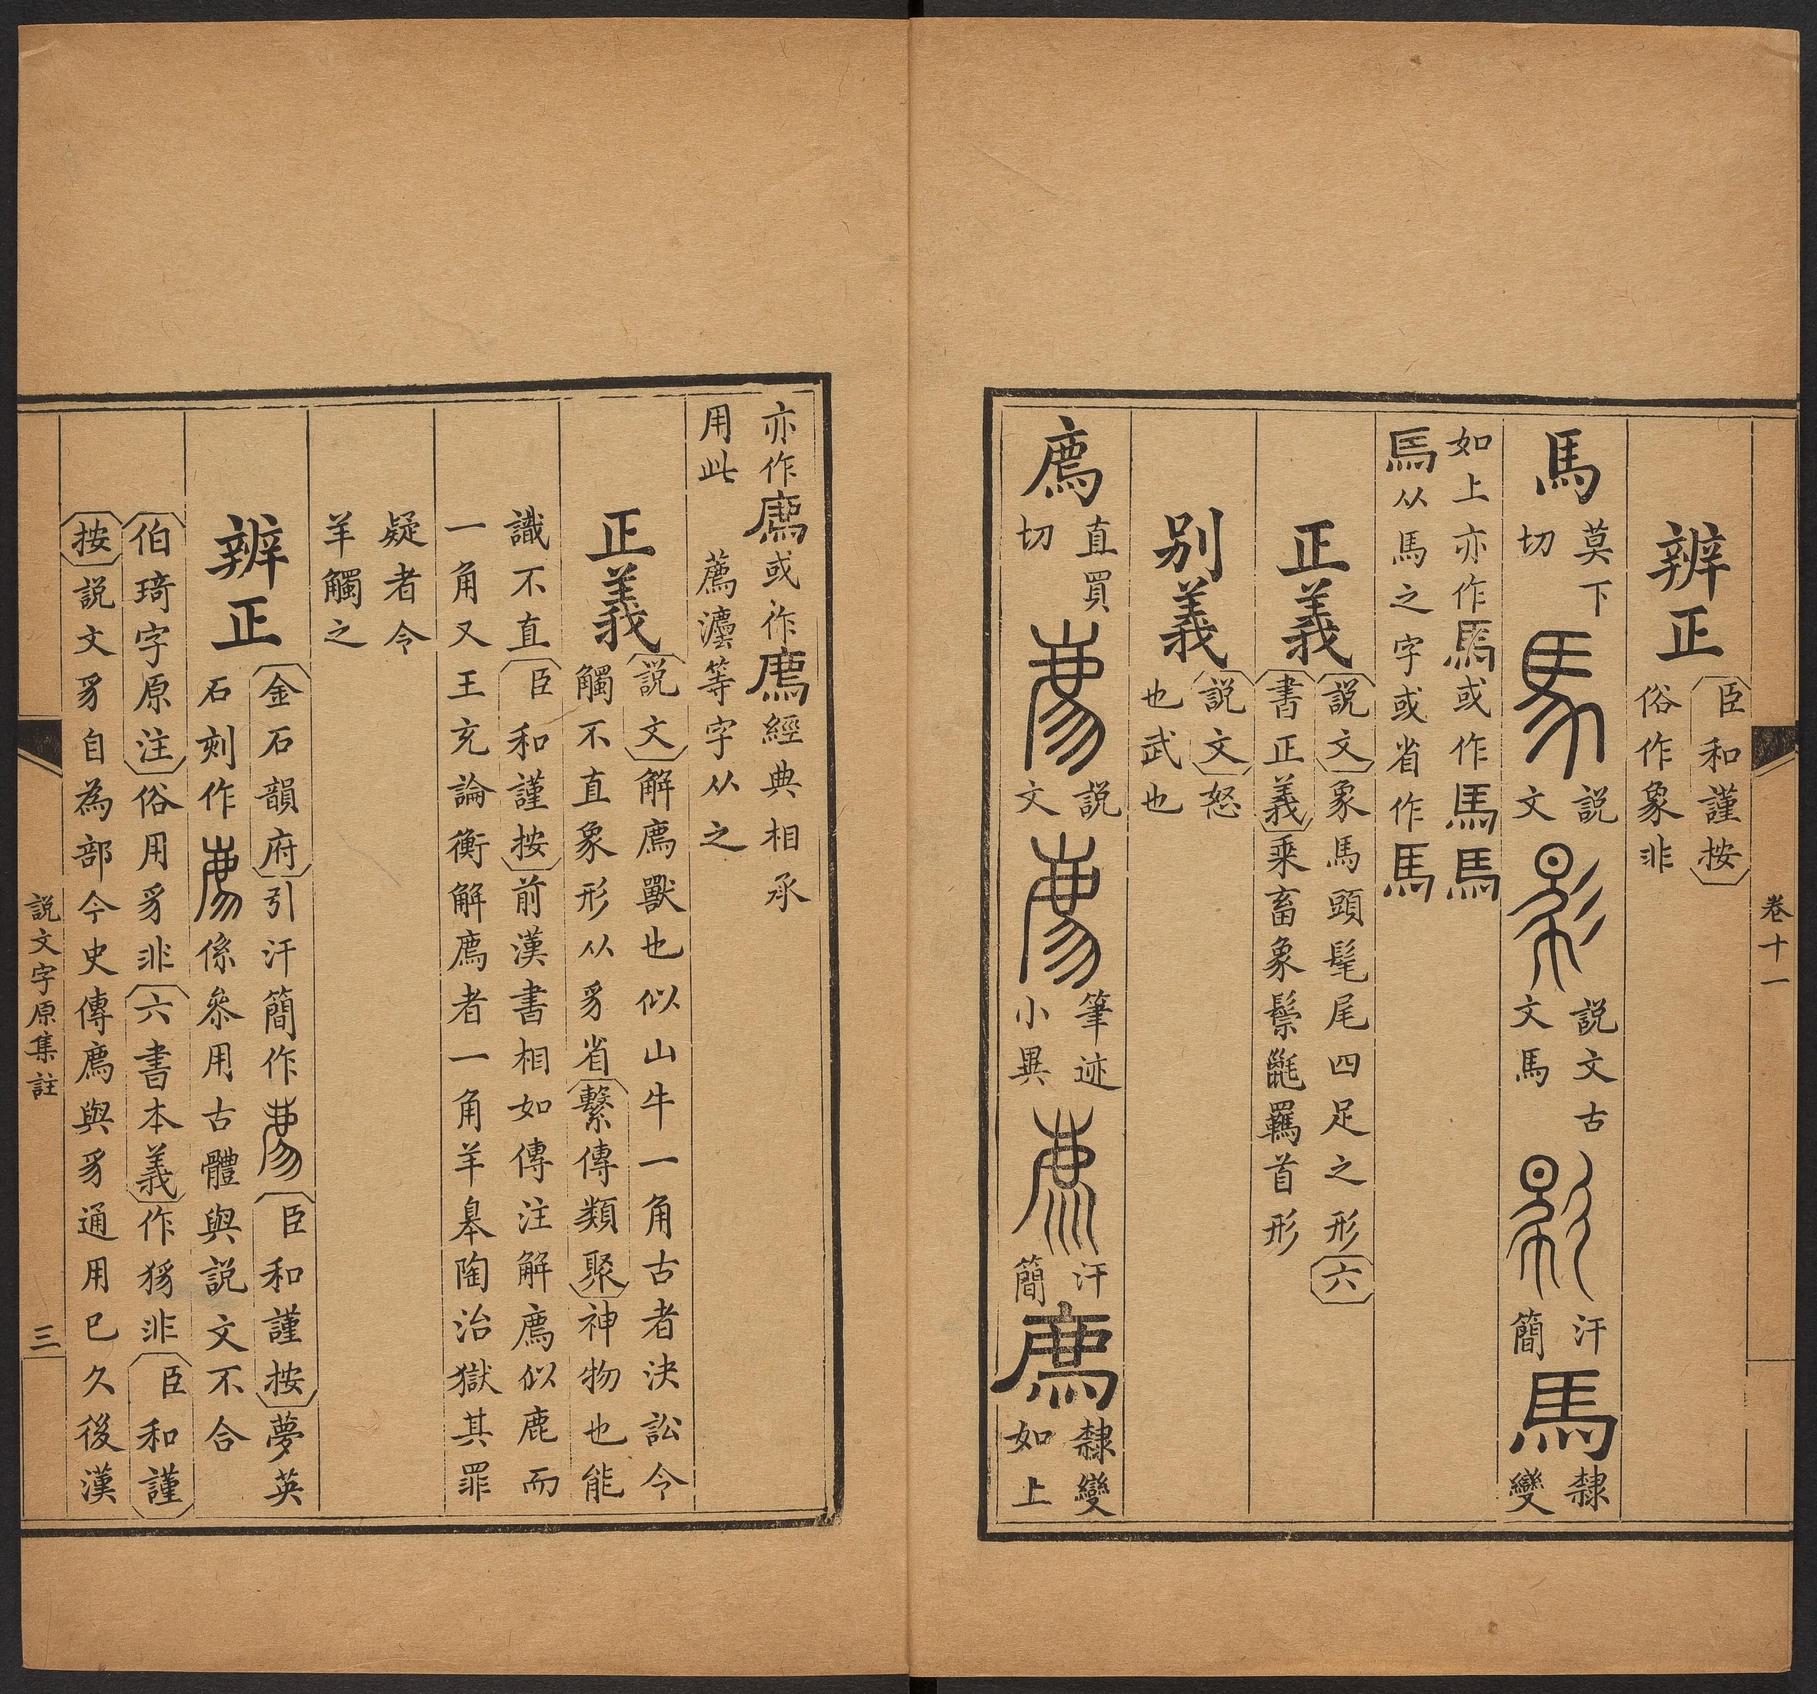 卷十一
辨正
臣和謹按
俗作象非
馬
莫下
切
說
文
說文古
文馬
汗
簡
馬
隸
變
如上亦作馬或作馬馬
馬从馬之字或省作馬
正義
說文象馬頭髦尾四足之形六
書正義乘畜象鬃氋羈首形
別義
說文怒
也武也
廌
直買
切
說
文
筆迹
小異
汗
簡
廌
隸變
如上
亦作廌或作廌經典相承
用此 薦灋等字从之
正義
說文解廌獸也似山牛一角古者決訟令
觸不直象形从豸省繫傳類聚神物也能
識不直臣和謹按前漢書相如傳注解廌似鹿而
一角又王充論衡解廌者一角羊皋陶治獄其罪
疑者令
羊觸之
辨正
金石韻府引汗簡作
臣和謹按夢英
石刻作
係叅用古體與說文不合
伯琦字原注俗用豸非六書本義作豸非臣和謹
按說文豸自為部今史傳廌與豸通用已久後漢
說文字原集註
三